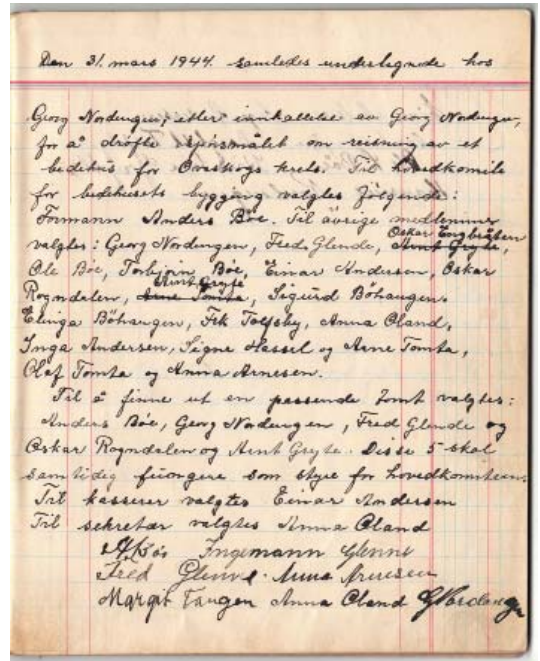 Den 31. mars 1944. samledes undertegnede hos
Georg Nordengen, etter innkallelse av Georg Nordengen,
for å drøfte spørsmålet om reisning av et
bedehus for Øveskogs krets. Til hovedkomite
for bedehusets bygging valgtes følgende:
Formann Anders Bøe. Til øvrige medlemmer
Oskar Engbråten
valgtes: Georg Nordengen, Fred Glende, Arnt Gryte,
Ole Bøe, Torbjørn Bøe, Einar Andersen, Oskar
Arnt Gryte
Rogndalen, Arne Tomta, Sigurd Bøhaugen.
Elinga Bøhaugen, Frk Tolfsby, Anna Øland,
Inga Andersen, Signe Hassel og Arne Tomta,
Olaf Tomta og Anna Arnesen.
Til å finne ut en passende tomt valgtes:
Anders Bøe, Georg Nordengen, Fred Glende og
Oskar Rogndalen og Arnt Gryte. Disse 5 skal
samtidig fungere som styre for hovedkomiteen.
Til kasserer valgtes Einar Andersen
Til sekretær valgtes Anna Øland
A Bøe Ingemann Glenne
Fred Glenne. Anna Arnesen
Margit Taugen Anna Øland G Nordengen